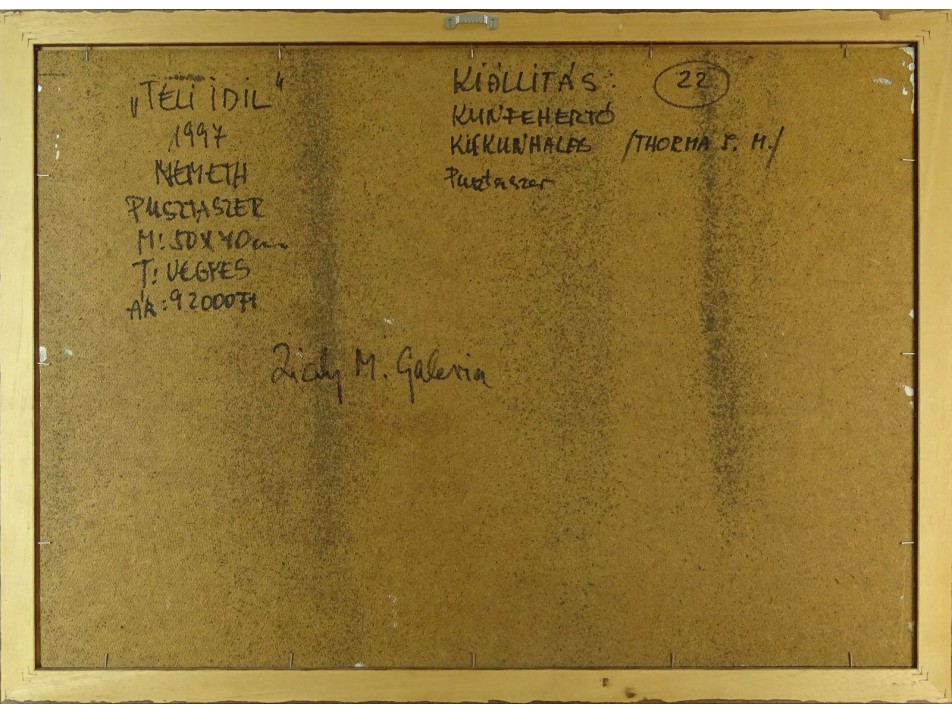 „TÉLI IDIL"
1997
NÉMETH
PUSZTASZER
M: 50X70cm
T: VEGYES
ÁR:
KIÁLLITÁS: 22
KUNFEHÉRTÓ
KISKUNHALAS /THORMA J. M./
Pusztaszer
Zichy M. Galeria